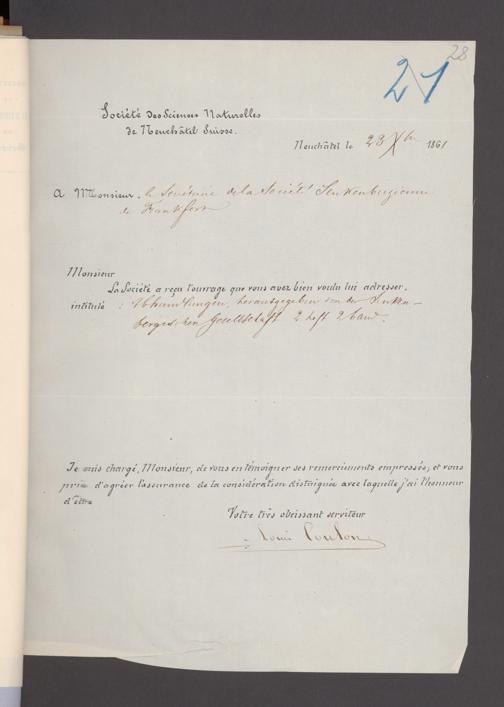 28
21
Société des Sciences Naturelles
de Neuchâtel Suisse.
Neuchâtel le 23 Xbre 1861
A Monsieur le Secrétaire de la Société Senkenbergienne
de Frankfort
Monsieur
La Société a reçu l'ouvrage que vous avez bien voulu lui adresser.
intitulé : Abhandlungen, herausgegeben von der Senken-
bergischen Gesellschaft 2 heft 2 band.
Je suis chargé, Monsieur, de vous en témoigner ses remerciements empressés, et vous
prie d'agréer l'assurance de la considération distinguée avec laquelle j'ai l'honneur
d'être
Votre très obeissant serviteur
Louis Coulon